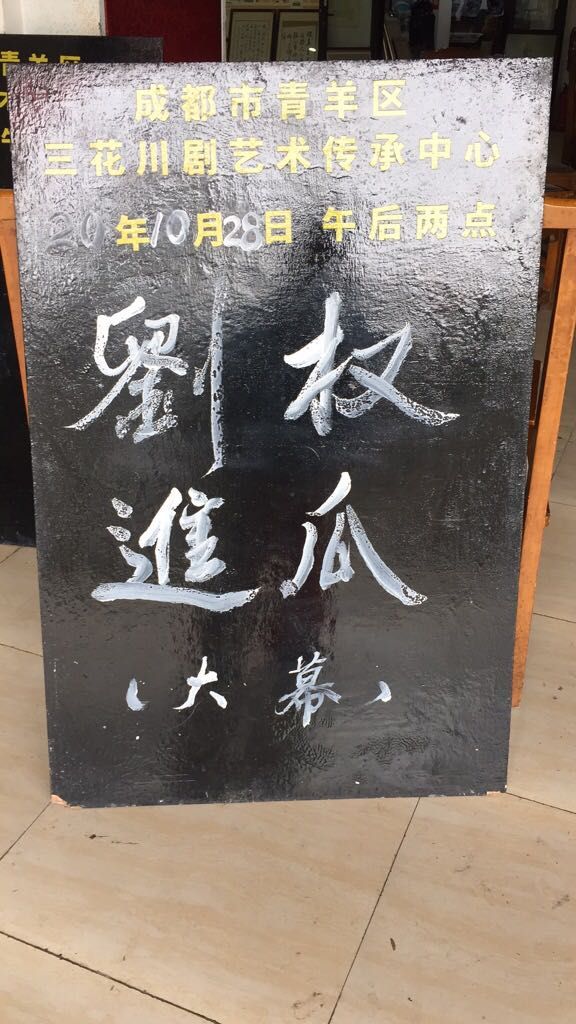 成都市青羊区
三花川剧艺术传承中心
20年10月28日 午后两点
劉权
進瓜
（大幕）
青羊区